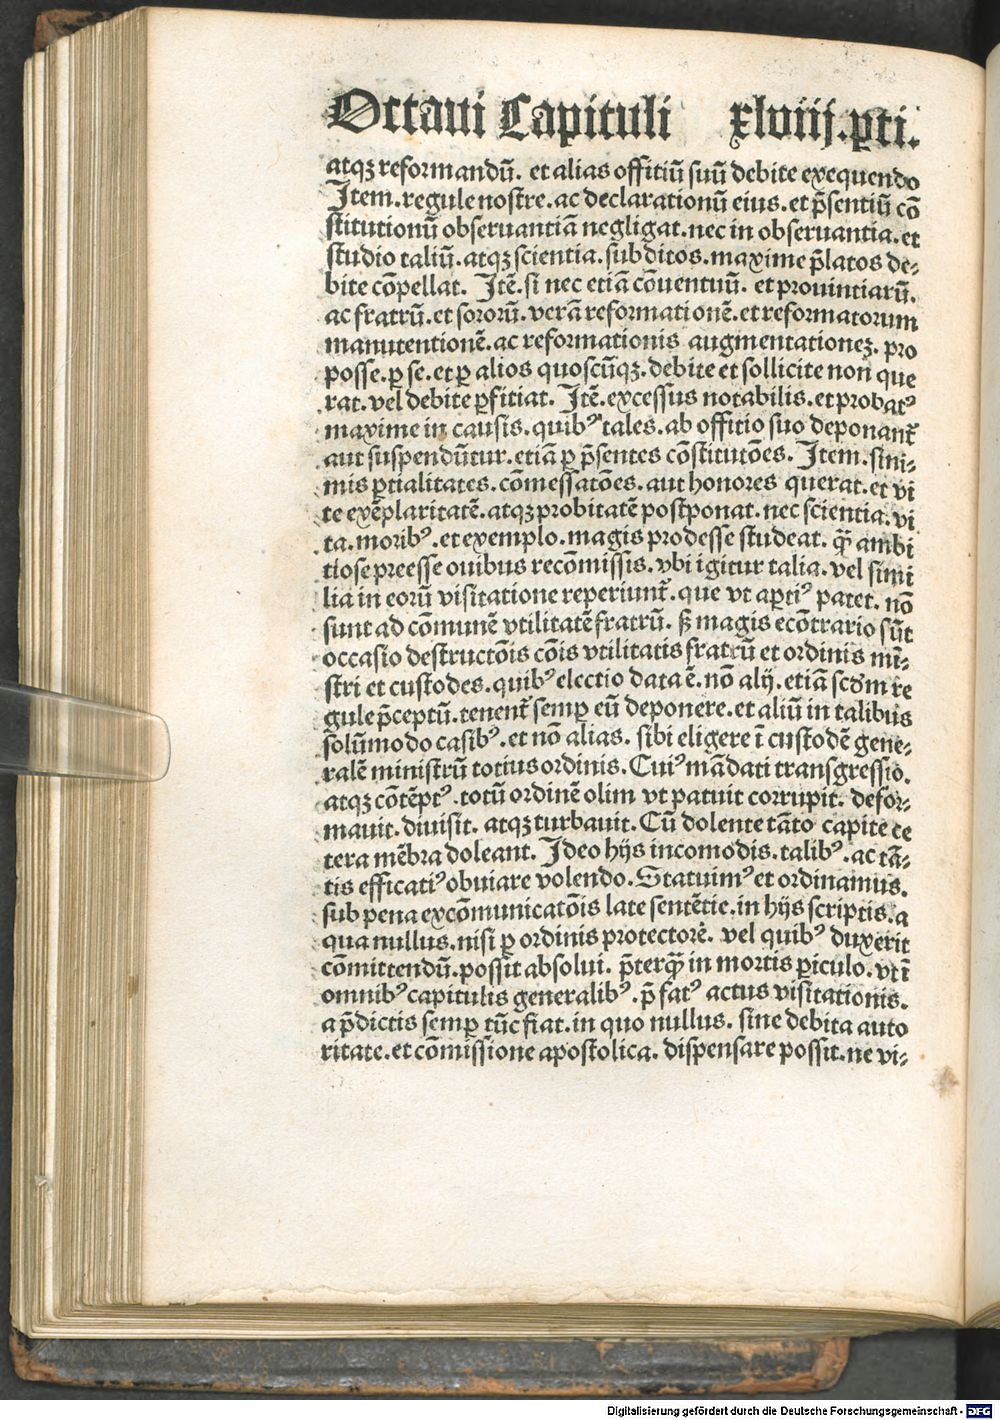 Octaui Capituli xlviij.pti.
atqꝫ reformandū. et alias offitiū suū debite exequendo
Item. regule nostre. ac declarationū eius. et p̄sentiū cō
stitutionū obseruantiā negligat. nec in obseruantia. et
studio taliū. atqꝫ scientia. subditos. maxime p̄latos de⸗
bite cōpellat. Itē. si nec etiā cōuentuū. et prouintiarū.
ac fratrū. et sororū. verā reformationē. et reformatorum
manutentionē. ac reformationis augmentationeꝫ. pro
posse. ꝑ se. et ꝑ alios quoscūqꝫ. debite et sollicite non que
rat. vel debite ꝑfitiat. Itē. excessus notabilis. et probatꝰ
maxime in causis. quibꝰ tales. ab offitio suo deponant᷑
aut suspendūtur. etiā ꝑ p̄sentes cōstitutōes. Item. sini⸗
mis ꝑtialitates. cōmessatōes. aut honores querat. et vi
te exēplaritatē. atqꝫ probitatē postponat. nec scientia. vi
ta. moribꝰ. et exemplo. magis prodesse studeat. q̄ꝫ ambi
tiose preesse ouibus recōmissis. vbi igitur talia. vel simi
lia in eorū visitatione reperiunt᷑. que vt aꝑtiꝰ patet. nō
sunt ad cōmunē vtilitatē fratrū. sꝫ magis ecōtrario sūt
occasio destructōis cōis vtilitatis fratrū et ordinis mī⸗
stri et custodes. quibꝰ electio data ē. nō alij. etiā scd̄m re
gule p̄ceptū. tenent᷑ semꝑ eū deponere. et aliū in talibus
solūmodo casibꝰ. et nō alias. sibi eligere ī custodē gene⸗
ralē ministrū totius ordinis. Cuiꝰ mādati transgressio.
atqꝫ cōtēptꝰ. totū ordinē olim vt patuit corrupit. defor⸗
mauit. diuisit. atqꝫ turbauit. Cū dolente tāto capite ce
tera mēbra doleant. Ideo hijs incomodis. talibꝰ. ac tā⸗
tis efficatiꝰ obuiare volendo. Statuimꝰ et ordinamus.
sub pena excōmunicatōis late sentētie. in hijs scriptis. a
qua nullus. nisi ꝑ ordinis protectorē. vel quibꝰ duxerit
cōmittendū. possit absolui. p̄terq̄ꝫ in mortis ꝑiculo. vt ī
omnibꝰ capitulis generalibꝰ. p̄fatꝰ actus visitationis.
a p̄dictis semꝑ tūc fiat. in quo nullus. sine debita auto
ritate. et cōmissione apostolica. dispensare possit. ne vi⸗
Digitalisierung gefördert durch die Deutsche Forschungsgemeinschaft - DFG